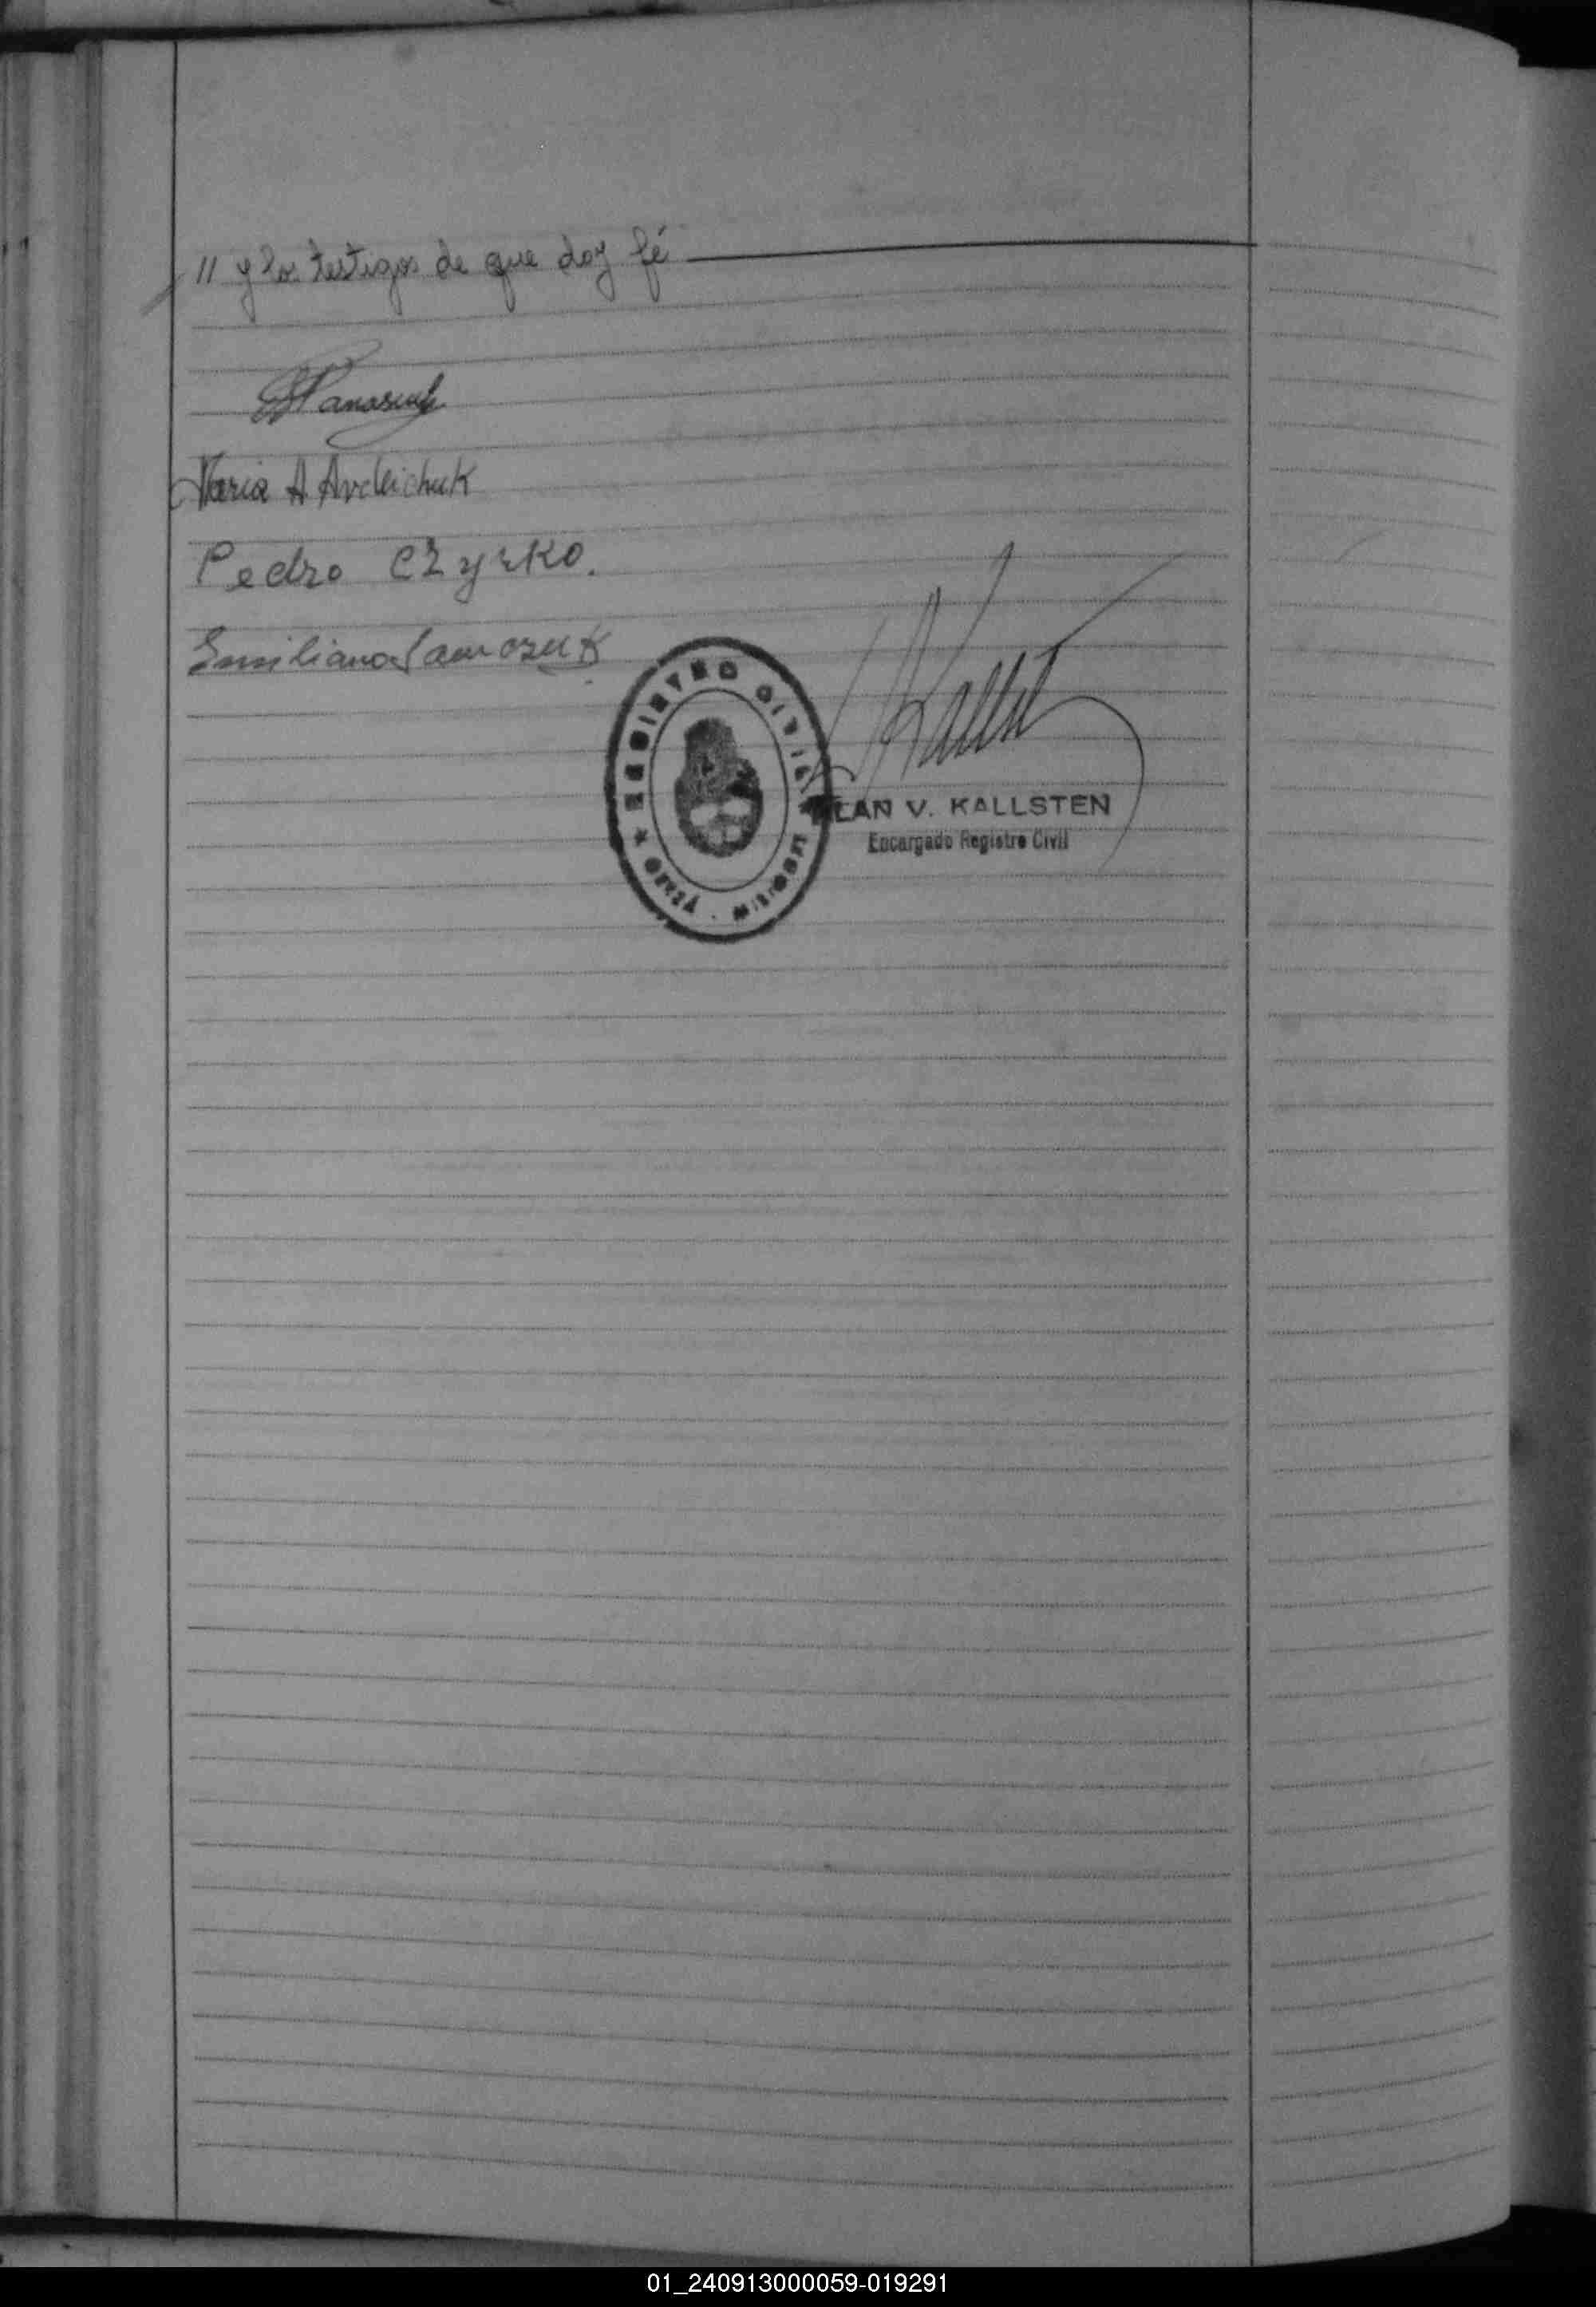 // y los testigos de que doy fé
Maria A Avdeichuk
Pedro CZyzKo.
Emiliano
REGISTRO CIVIL
MISIONES
ALAN V. KALLSTEN
Encargado Registro Civil
01_240913000059-019291